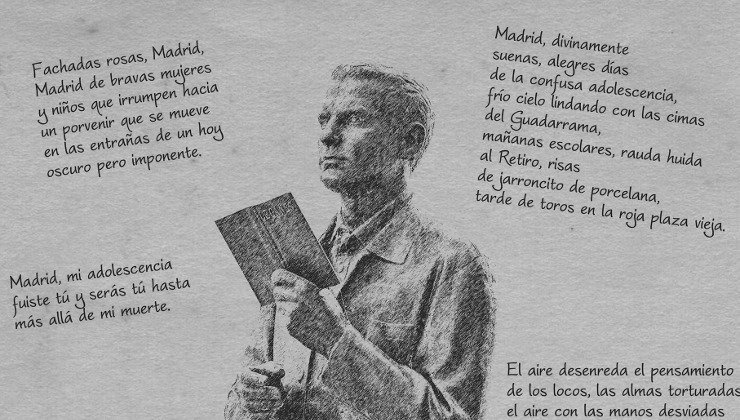 Fachadas rosas, Madrid,
Madrid de bravas mujeres
y niños que irrumpen hacia
un porvenir que se mueve
en las entrañas de un hoy
oscuro pero imponente.
Madrid, divinamente
suenas, alegres días
de la confusa adolescencia,
frío cielo lindando con las cimas
del Guadarrama,
mañanas escolares, rauda huida
al Retiro, risas
de jarroncito de porcelana,
tarde de toros en la roja plaza vieja.
Madrid, mi adolescencia
fuiste tú y serás tú hasta
más allá de mi muerte.
El aire desenreda el pensamiento
de los locos, las almas torturadas
el aire con las manos desviadas